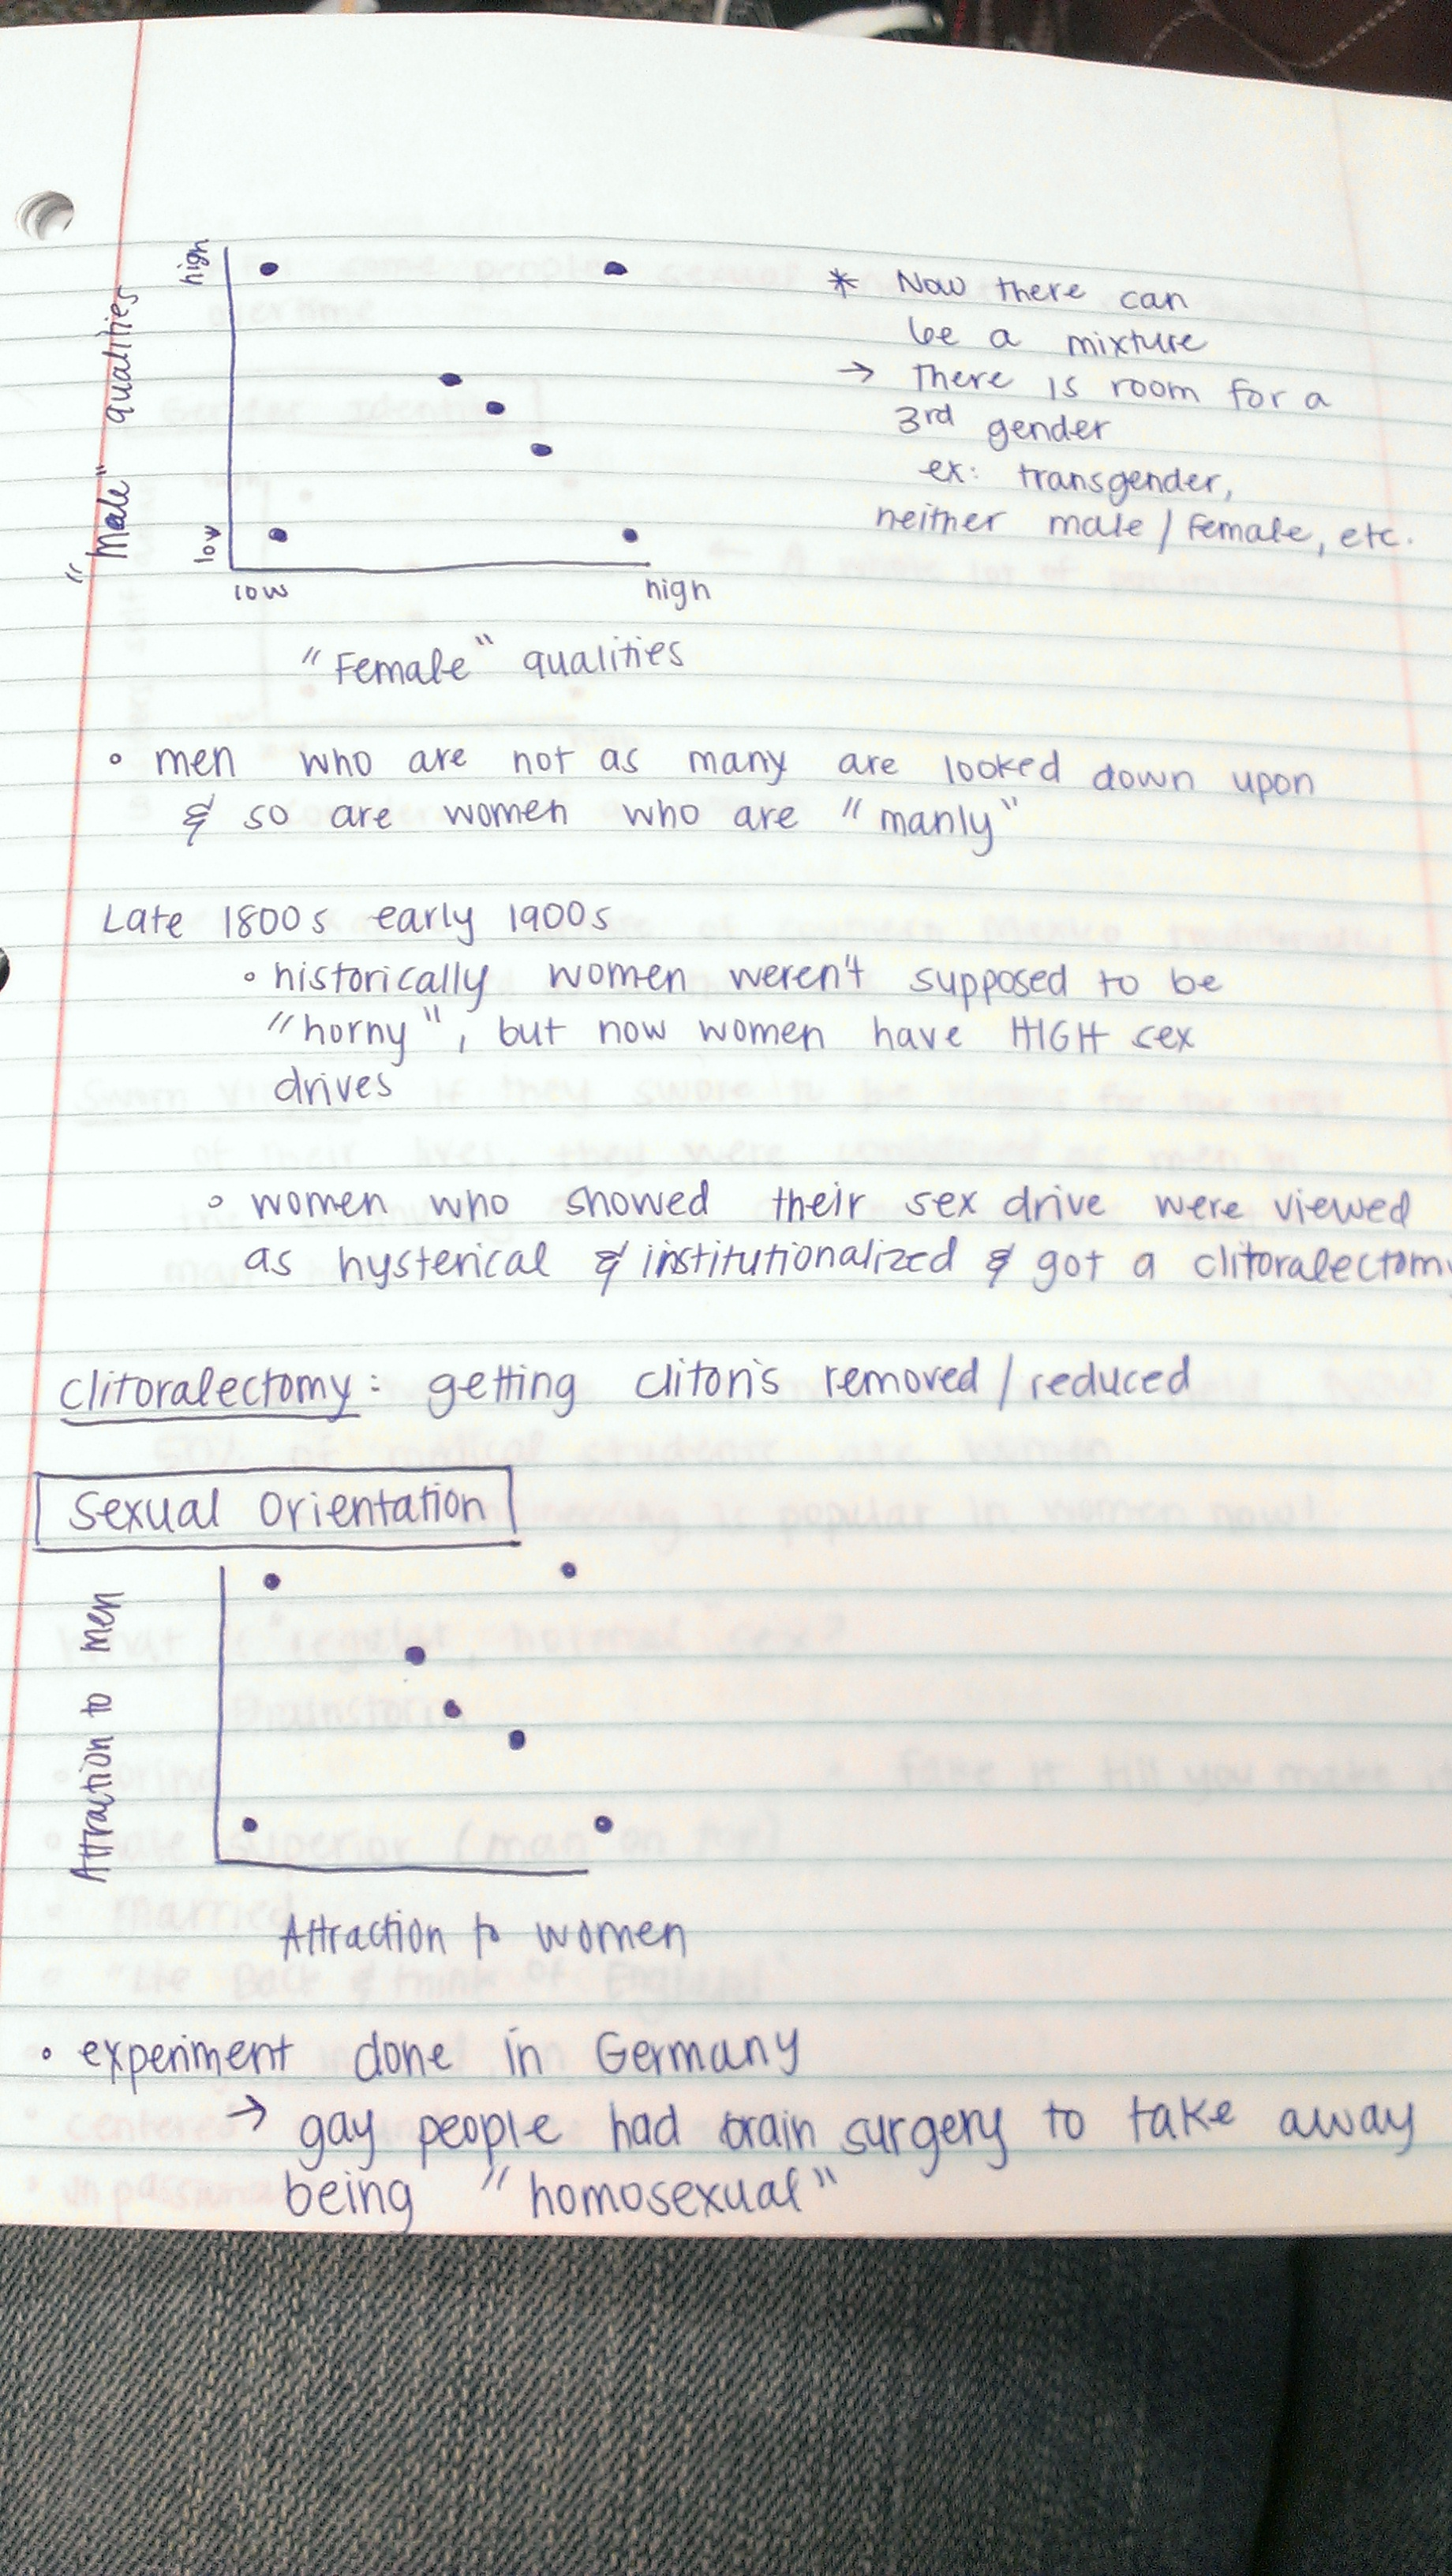 high
"Male" qualities
low
low
high
"Female" qualities
* Now there can
be a mixture
→ There is room for a
3rd gender
ex: transgender,
neither male / female, etc.
◦ men who are not as many are looked down upon
& so are women who are "manly"
Late 1800s early 1900s
◦ historically women weren't supposed to be
"horny", but now women have HIGH sex
drives
◦ women who showed their sex drive were viewed
as hysterical & institutionalized & got a clitoralectomy
Clitoralectomy: getting clitoris removed / reduced
Sexual Orientation
Attraction to men
Attraction to women
• experiment done in Germany
→ gay people had brain surgery to take away
being "homosexual"